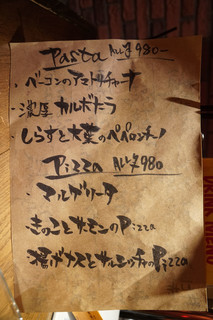 Pasta ALL ¥980-
・ベーコンのアマトリチャーナ
・濃厚カルボナーラ
・しらすと大葉のペペロンチーノ
Pizza ALL ¥980
・マルゲリータ
・きのことサーモンのPizza
・揚げナスとサルシッチャのPizza